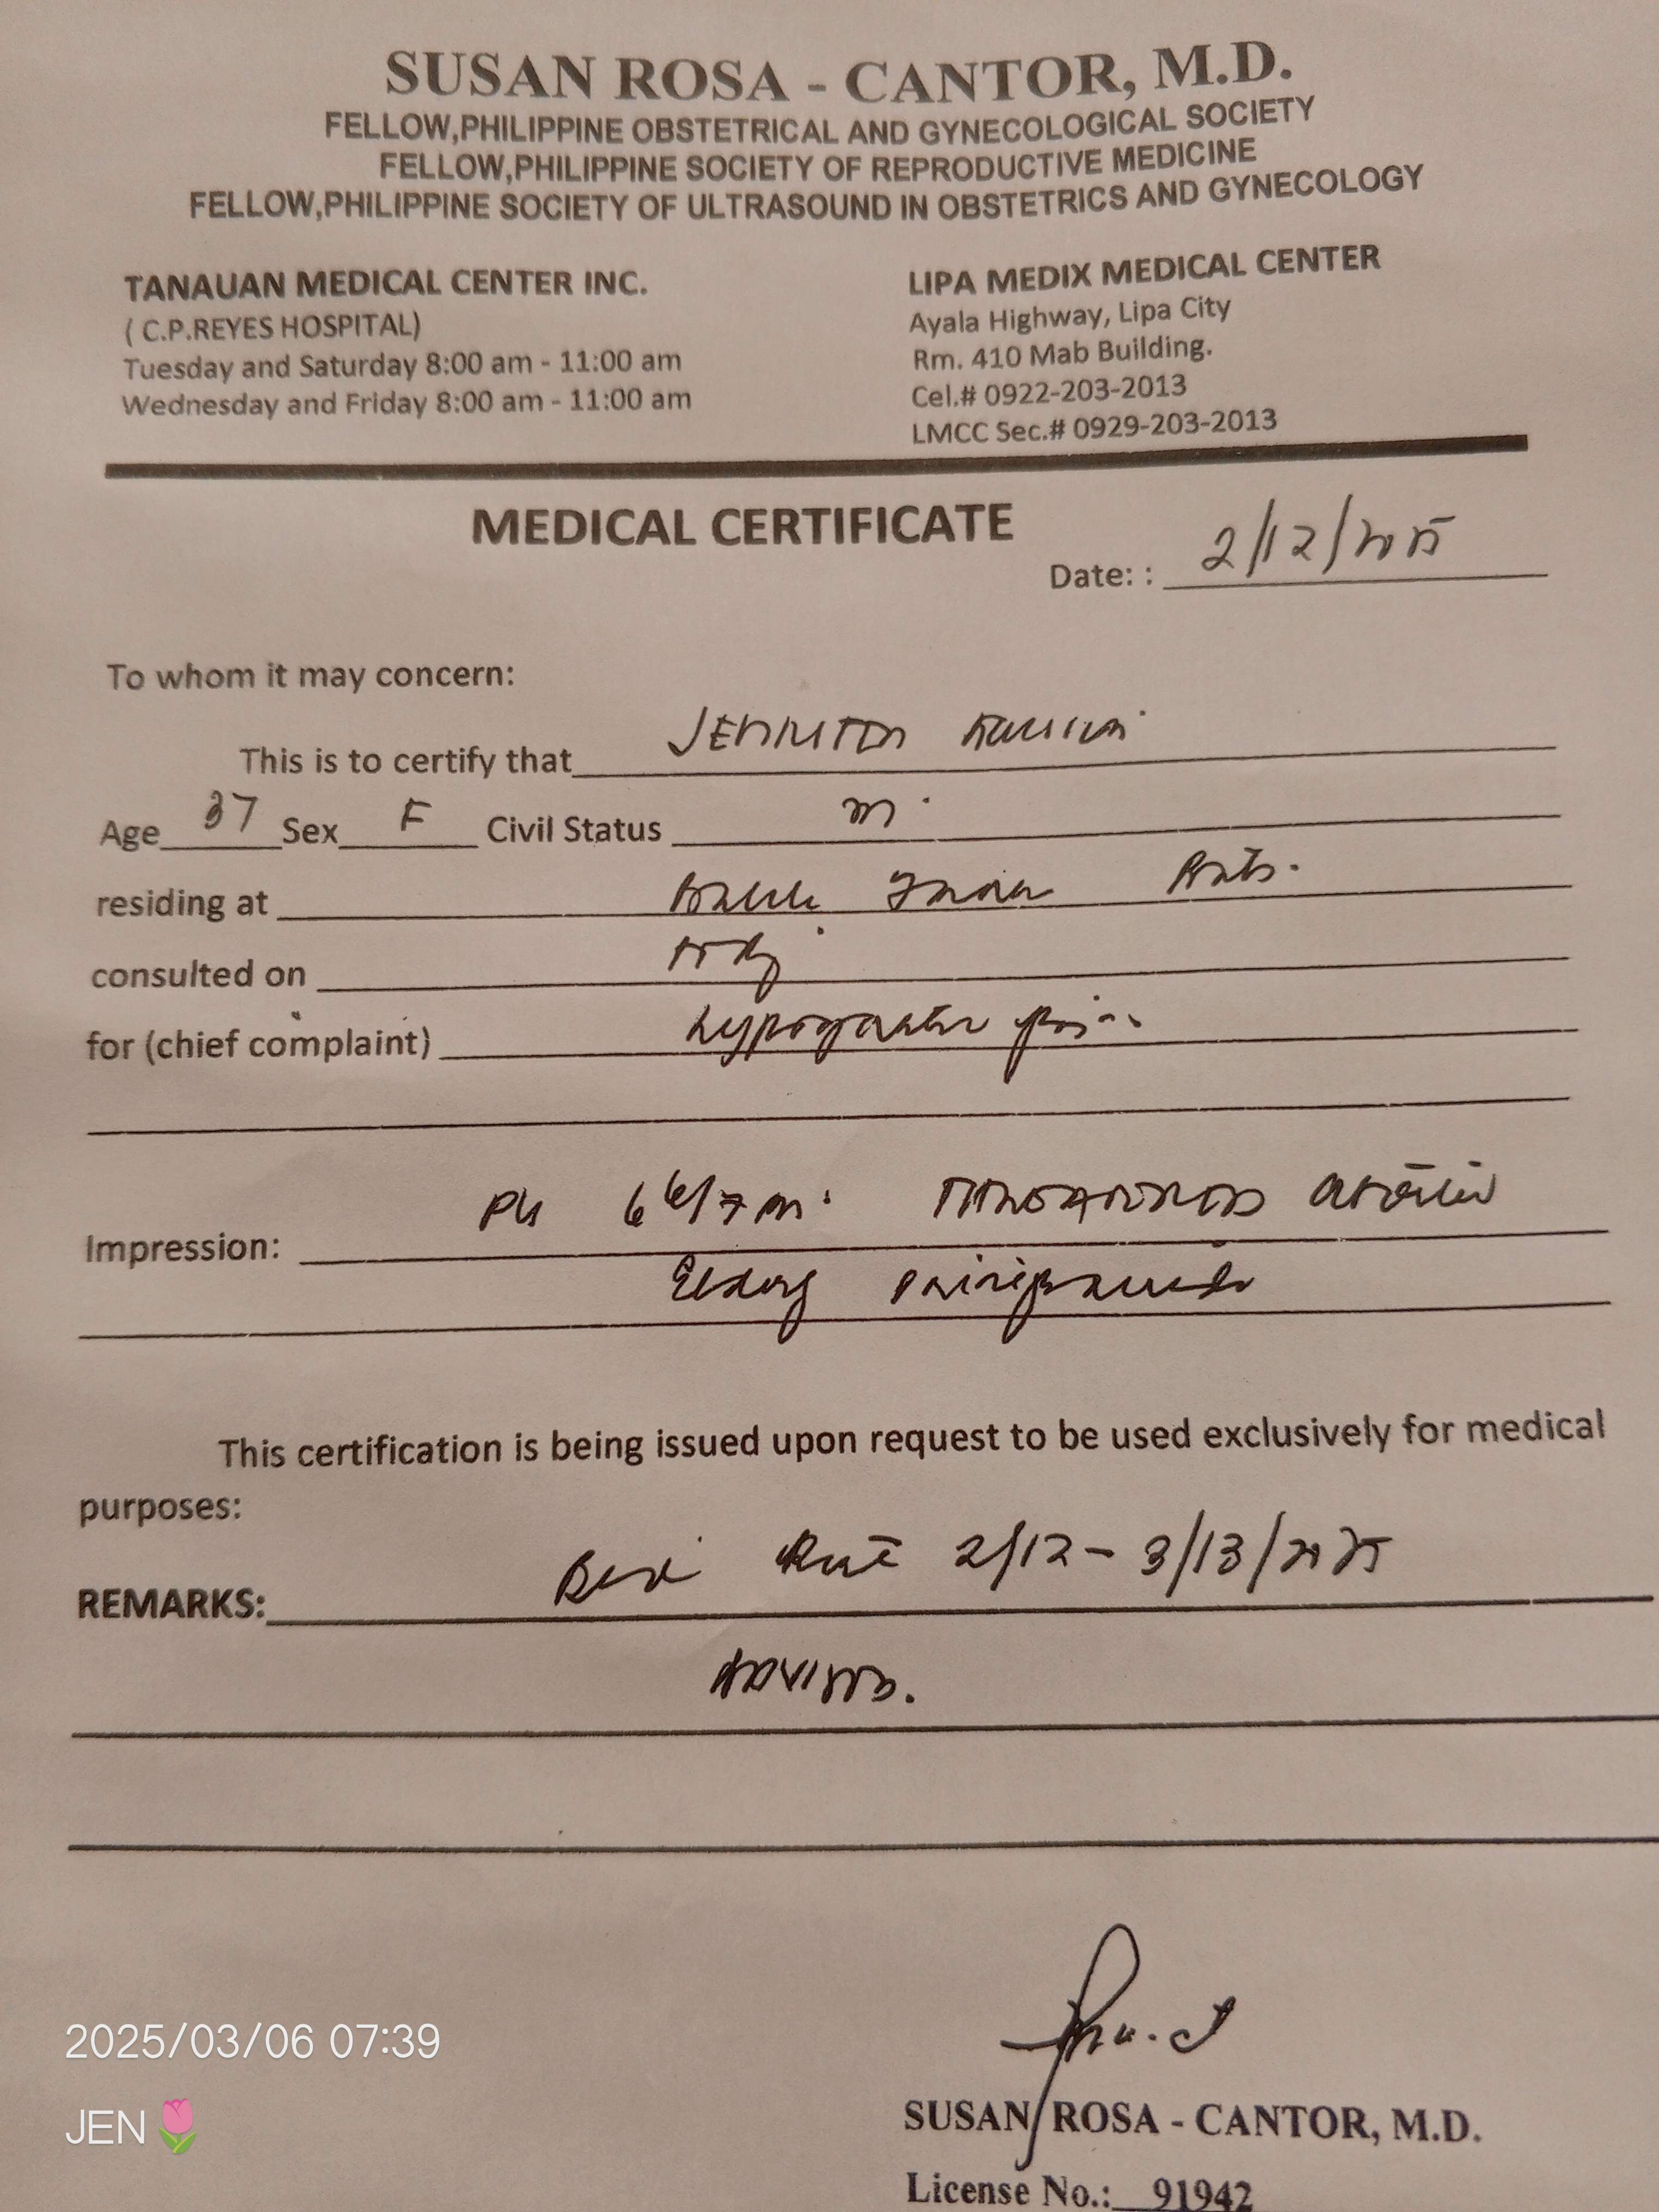 SUSAN ROSA - CANTOR, M.D.
FELLOW,PHILIPPINE OBSTETRICAL AND GYNECOLOGICAL SOCIETY
FELLOW,PHILIPPINE SOCIETY OF REPRODUCTIVE MEDICINE
FELLOW,PHILIPPINE SOCIETY OF ULTRASOUND IN OBSTETRICS AND GYNECOLOGY
TANAUAN MEDICAL CENTER INC.
( C.P.REYES HOSPITAL)
Tuesday and Saturday 8:00 am - 11:00 am
Wednesday and Friday 8:00 am - 11:00 am
LIPA MEDIX MEDICAL CENTER
Ayala Highway, Lipa City
Rm. 410 Mab Building.
Cel.# 0922-203-2013
LMCC Sec.# 0929-203-2013
MEDICAL CERTIFICATE
Date: : 2/12/2025
To whom it may concern:
This is to certify that
Age 37 Sex F Civil Status m.
residing at
consulted on
for (chief complaint) hypogastric pain
Impression: PU 6 6/7 THREATENED
Elderly primigravida
This certification is being issued upon request to be used exclusively for medical
purposes:
REMARKS: Bed Rest 2/12 - 3/13/2025
ADVISED.
SUSAN ROSA - CANTOR, M.D.
License No.: 91942
2025/03/06 07:39
JEN